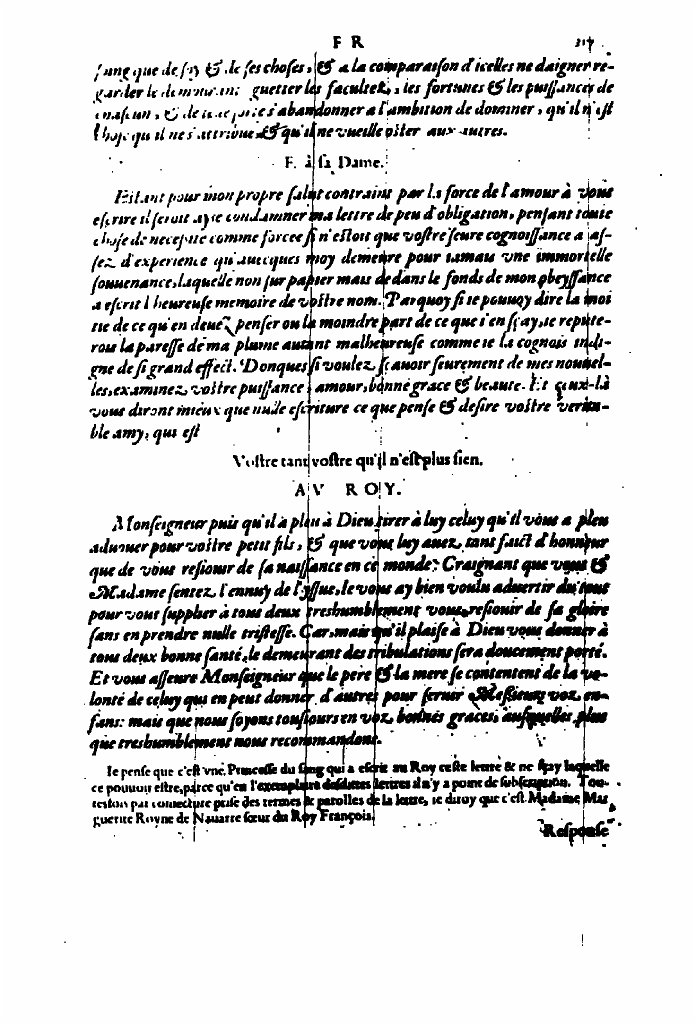 F R 317
sang que de soy & de ses choses, & a la comparaison d'icelles ne daigner re-
garder le demourant: guetter les facultez, les fortunes & les puissances de
chascun, & de ne s'abandonner a l'ambition de dominer, qu'il n'est
chose qu'il ne s'attribue & qu'il ne vueille oster aux autres.
F. à sa Dame.
Estant pour mon propre salut contraint par la force de l'amour à vous
escrire il seroit aysé condamner ma lettre de peu d'obligation, pensant toute
chose de necessité comme forcee si n'estoit que vostre seure cognoissance a as-
sez d'experience qu'avecques moy demeure pour iamais vne immortelle
souuenance, laquelle non sur papier mais dedans le fonds de mon obeyssance
a escrit l'heureuse memoire de vostre nom. Parquoy si ie pouuoy dire la moi
tie de ce qu'en deuez penser ou la moindre part de ce que i'en sçay, ie repute-
rois la paresse de ma plume autant malheureuse comme ie la cognois indi-
gne de si grand effect. Donques si voulez sçauoir seurement de mes nouuel-
les, examinez vostre puissance, amour, bonne grace & beaute. Et ceux-là
vous diront mieux que nulle escriture ce que pense & desire vostre verita-
ble amy, qui est
Vostre tant vostre qu'il n'est plus sien.
AV ROY.
Monseigneur puis qu'il à pleu à Dieu tirer à luy celuy qu'il vous a pleu
aduouer pour vostre petit fils, & que vous luy auez tant faict d'honneur
que de vous resiouir de sa naissance en ce monde: Craignant que vous &
Madame sentez l'ennuy de l'yssue, ie vous ay bien voulu aduertir du tout
pour vous supplier à tous deux treshumblement vous resiouir de sa gloire
sans en prendre nulle tristesse. Car, mais qu'il plaise à Dieu vous donner à
tous deux bonne santé, le demeurant des tribulations sera doucement porté.
Et vous asseure Monseigneur que le pere & la mere se contentent de la vo-
lonté de celuy qui en peut donner d'autres pour seruir Messieurs voz en-
fans: mais que nous soyons tousiours en voz bonnes graces, ausquelles plus
que treshumblement nous recommandons.
Ie pense que c'est vne Princesse du sang qui a escrit au Roy ceste lettre & ne sçay laquelle
ce pouuoit estre, parce qu'en l'exemplaire desdites lettres il n'y a point de subscription. Tou-
tesfois par coniecture prise des termes & parolles de la lettre, ie diroy que c'est Madame Mar
guerite Royne de Nauarre sœur du Roy François.
Response